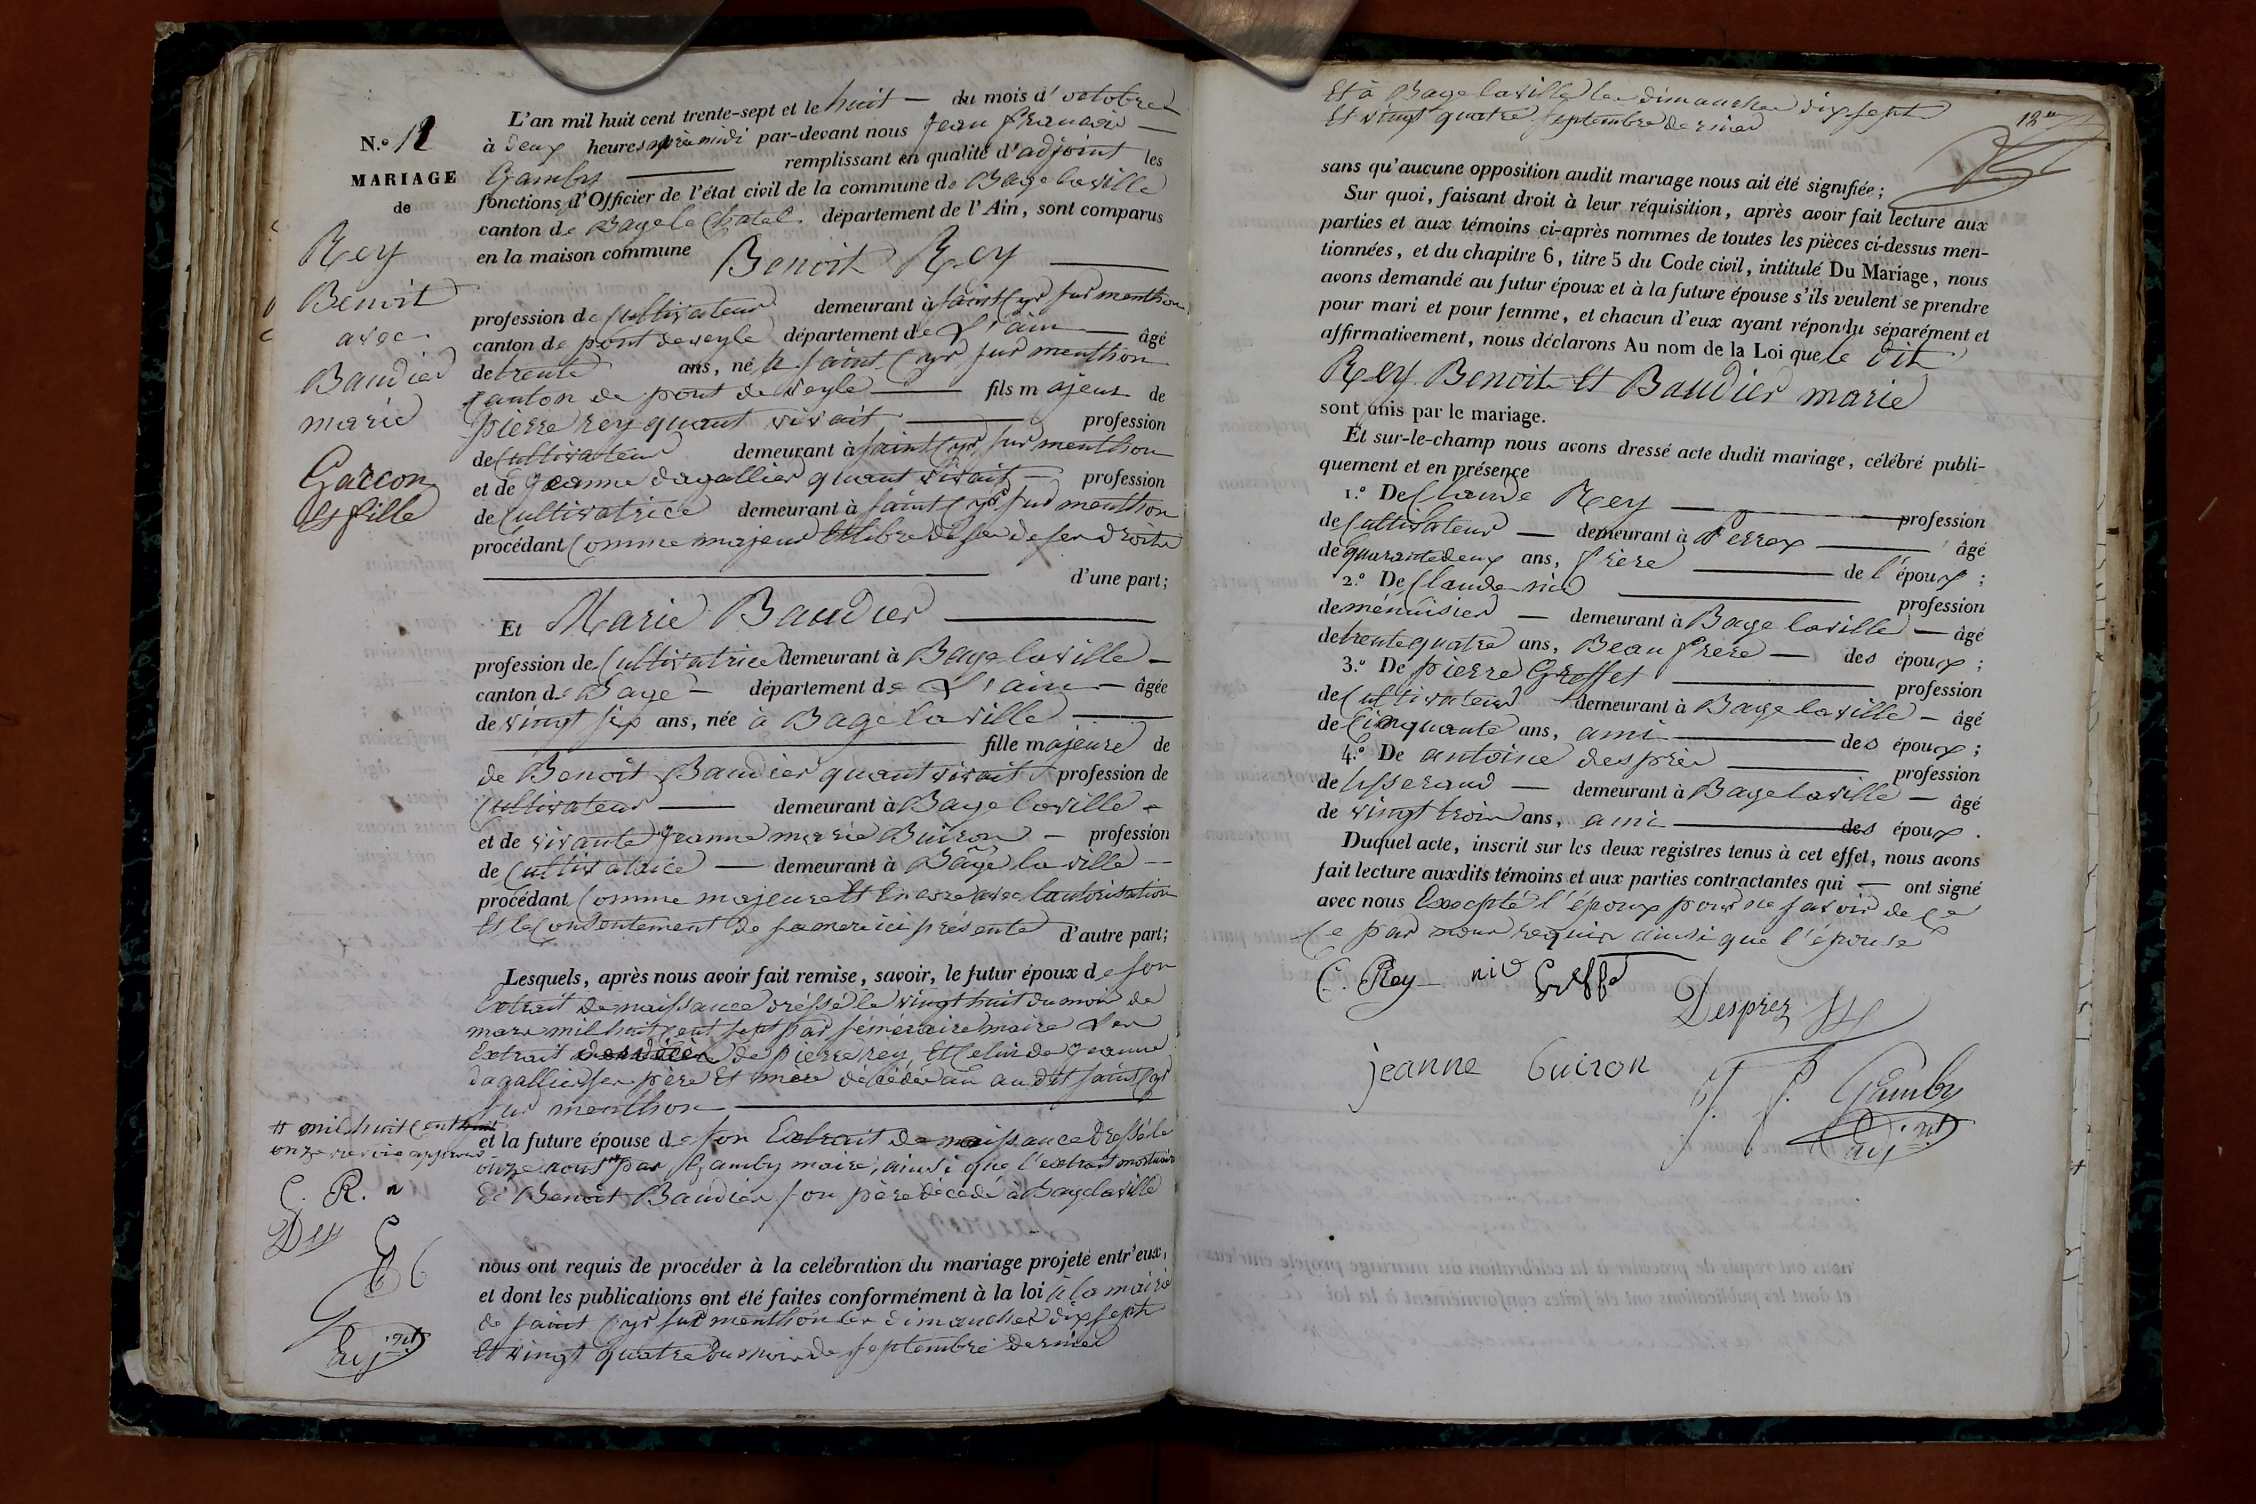 N.º 12
MARIAGE
de
Rey
Benoit
avec
Baudier
marie
Garcon
et fille
L'an mil huit cent trente-sept et le huit du mois d'octobre
à deux heures après midi par-devant nous Jean François
Gamby remplissant en qualité d'adjoint les
fonctions d'Officier de l'état civil de la commune de Bage laville
canton de Bage le Chatel département de l'Ain, sont comparus
en la maison commune Benoit Rey
profession de Cultivateur demeurant à saint Cyr sur menthon
canton de pont deveyle département de L'ain âgé
de trente ans, né a saint Cyr sur menthon
Canton de pont de veyle fils majeur de
pierre rey quant vivait profession
de Cultivateur demeurant à saint Cyr sur menthon
et de Jeanne dagallier quant vivait profession
de Cultivatrice demeurant à saint Cyr sur menthon
procédant Comme majeur Et libre de ses droits
d'une part;
Et Marie Baudier
profession de Cultivatrice demeurant à Bage laville
canton de Bage département de L'ain âgée
de vingt six ans, née à Bage laville
fille majeure de
de Benoit Baudier quant vivait profession de
Cultivateur demeurant à Bage laville
et de vivante Jeanne marie Buiron profession
de Cultivatrice demeurant à Bagé la ville
procédant Comme majeure Et Encore avec lautorisation
Et le Consentement de sa mere ici présente d'autre part;
Lesquels, après nous avoir fait remise, savoir, le futur époux de son
Extrait de naissance dréssé le vingt huit du mois de
mars mil huit Cent sept par maire Les
Extrait de pierre rey, Et Celui de Jeanne
dagallier ses père Et mère décédés au dit saint Cyr
sur menthon
et la future épouse de son Extrait de naissance dressé le
onze aoust par Gamby maire, ainsi que l'extrait mortuaire
de Benoit Baudier son père décédé à Bage laville
# mil huit Cent
onze
C. R. n
Des G
G
adj.nt
nous ont requis de procéder à la celébration du mariage projeté entr'eux,
et dont les publications ont été faites conformément à la loi à la mairie
de saint Cyr sur menthon les dimanches dix sept
Et vingt quatre du mois de septembre dernier
12me
Et à Bage laville les dimanches dix sept
Et vingt quatre septembre dernier
sans qu'aucune opposition audit mariage nous ait été signifiée;
Sur quoi, faisant droit à leur réquisition, après avoir fait lecture aux
parties et aux témoins ci-après nommes de toutes les pièces ci-dessus men-
tionnées, et du chapitre 6, titre 5 du Code civil, intitulé Du Mariage, nous
avons demandé au futur époux et à la future épouse s'ils veulent se prendre
pour mari et pour femme, et chacun d'eux ayant répondu séparément et
affirmativement, nous déclarons Au nom de la Loi que le dit
Rey Benoit Et Baudier marie
sont unis par le mariage.
Et sur-le-champ nous avons dressé acte dudit mariage, célébré publi-
quement et en présence
1.º De Claude Rey profession
de Cultivateur demeurant à Perrex âgé
de quarante deux ans, frère de l'époux;
2.º De Claude nid profession
de ménuisier demeurant à Bage laville âgé
de trente quatre ans, Beau frère des époux;
3.º De pierre Greffet profession
de Cultivateur demeurant à Bage laville âgé
de Cinquante ans, ami des époux;
4.º De antoine despréz profession
de tisserand demeurant à Bage laville âgé
de vingt trois ans, ami des époux.
Duquel acte, inscrit sur les deux registres tenus à cet effet, nous avons
fait lecture auxdits témoins et aux parties contractantes qui ont signé
avec nous Excepté l'époux pour ne savoir de Ce
Ce par nous requis ainsi que l'épouse
C. Rey nid Greffet
Desprez
jeanne buiron
J. F. Gamby
adj.nt